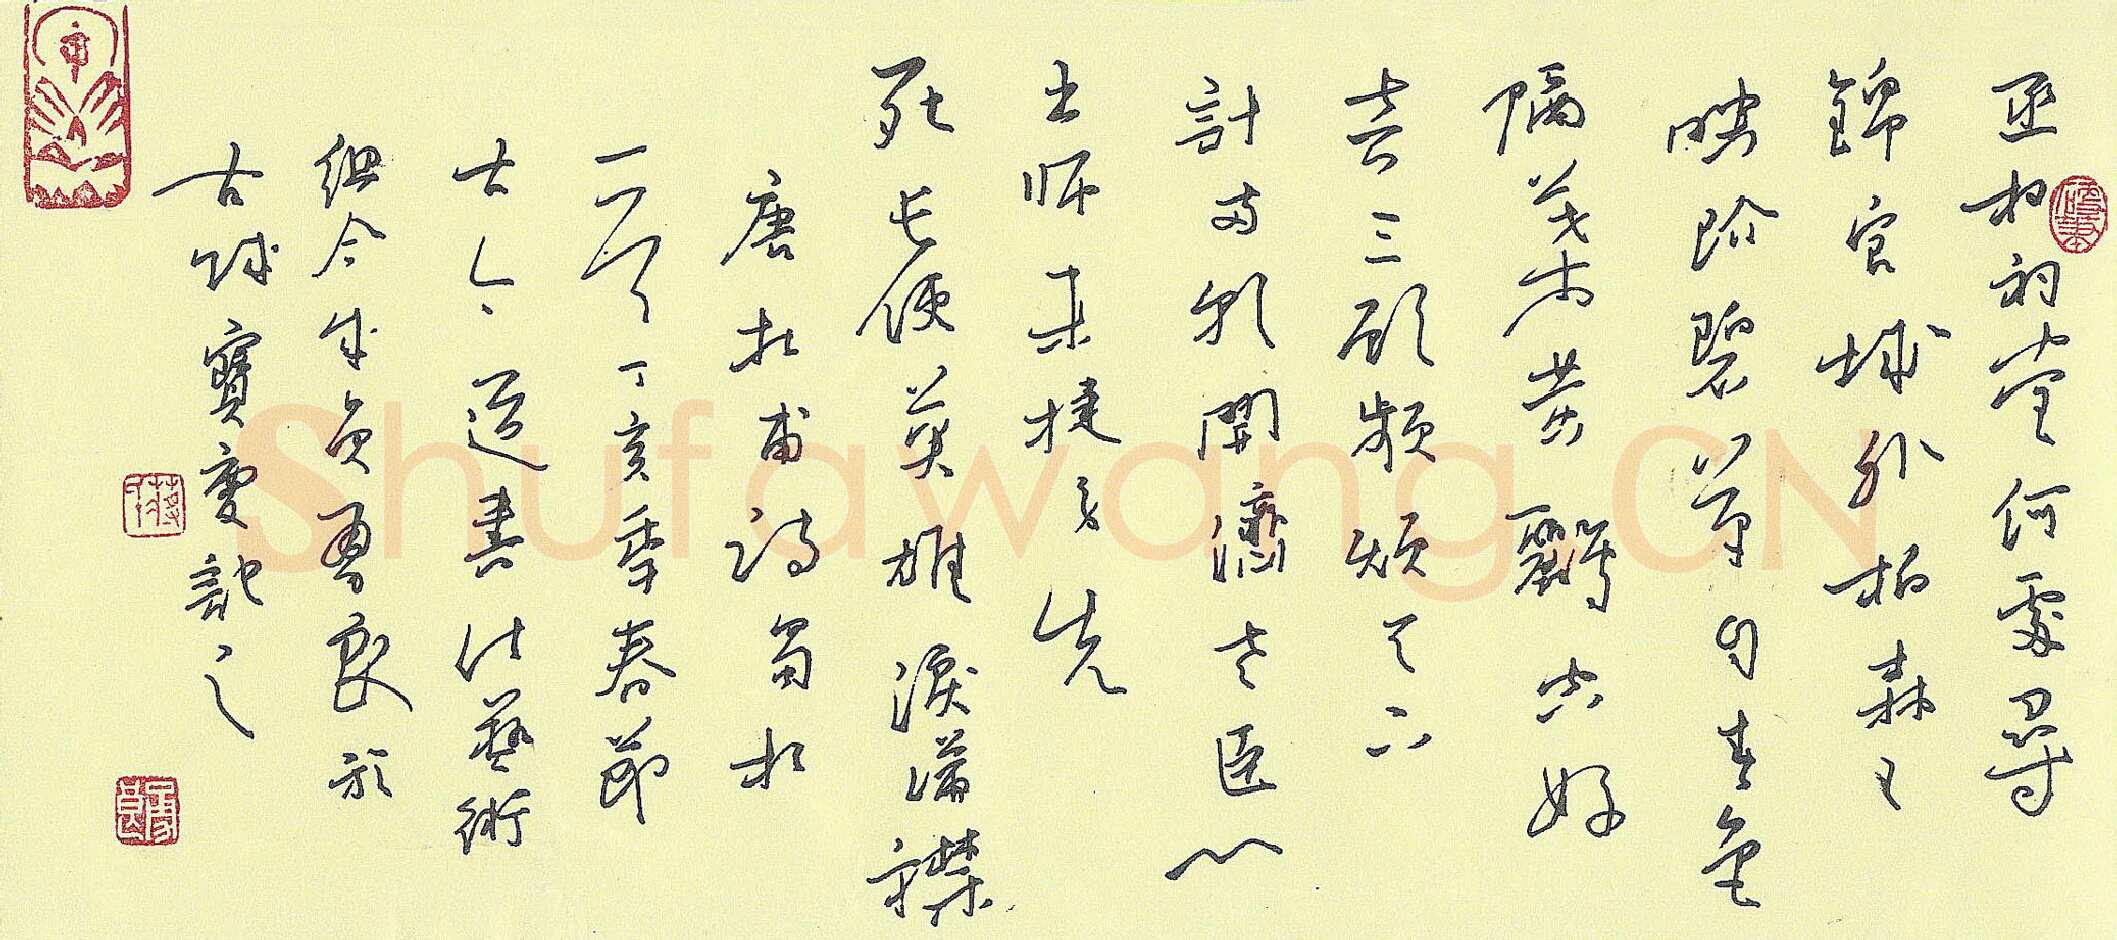 丞相祠堂何處尋
錦官城外柏森森
映階碧草自春色
隔葉黃鸝空好
音三顧頻煩天下
計兩朝開濟老臣心
出師未捷身先
死長使英雄淚滿襟
唐杜甫詩蜀相
一首丁亥季春節
書法藝術
組合成員勇良於
古城寶慶記之
Shufawang.CN